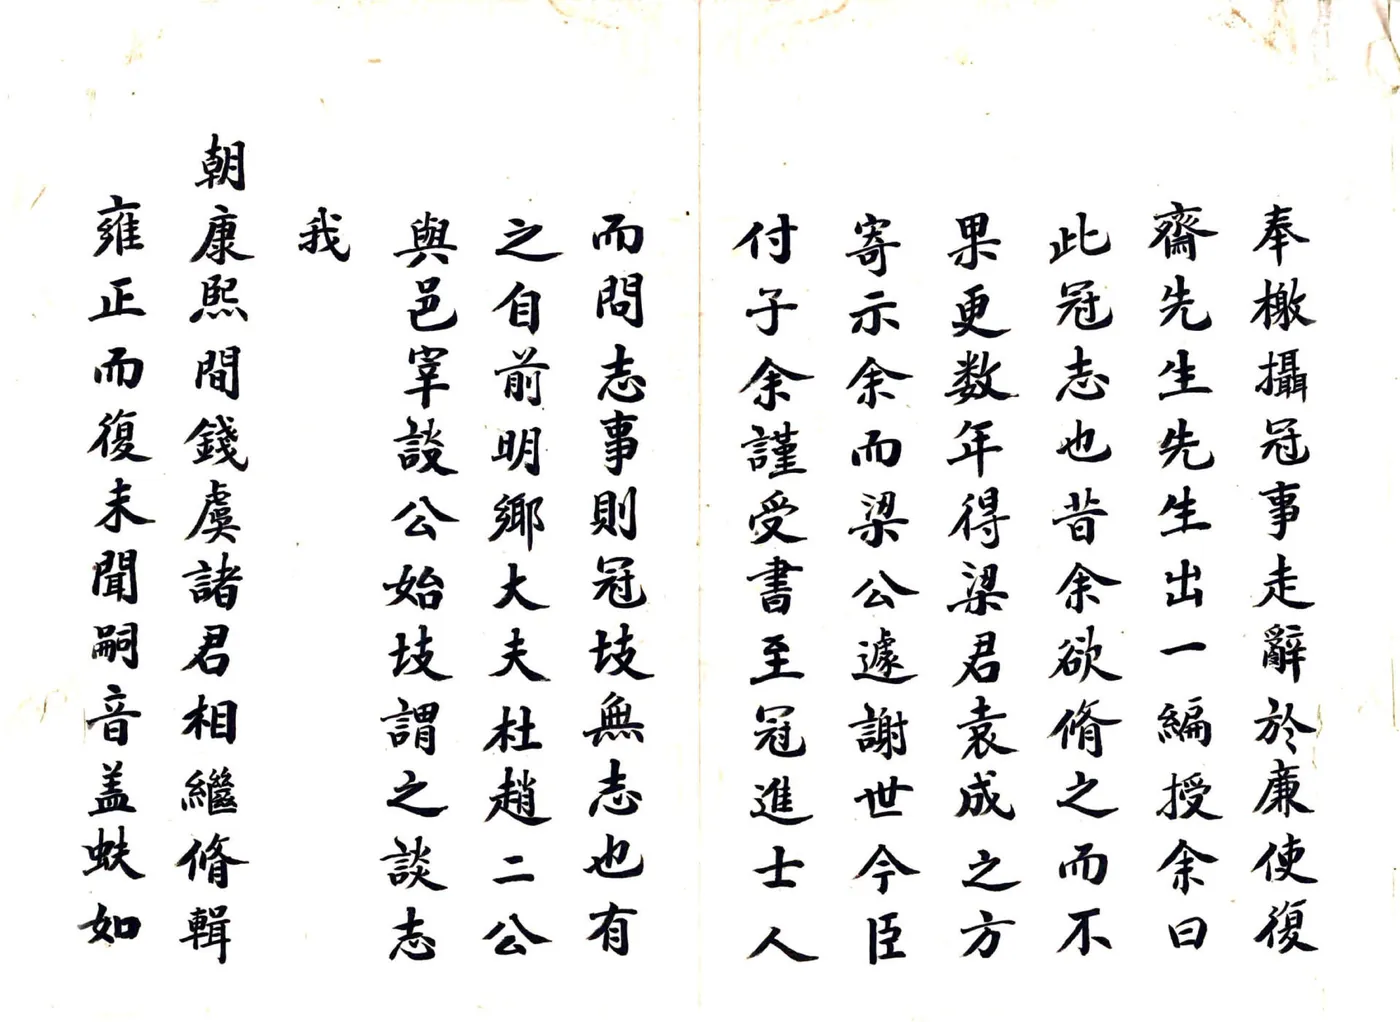 奉檄攝冠事走辭於廉使復
齋先生先生出一編授余曰
此冠志也昔余欲脩之而不
果更数年得梁君袁成之方
寄示余而梁公遽謝世今臣
付子余謹受書至冠進士人
而問志事則冠坟無志也有
之自前明鄉大夫杜趙二公
與邑宰談公始坟謂之談志
我
朝康熙間錢虞諸君相繼脩輯
雍正而復未聞嗣音盖蚨如